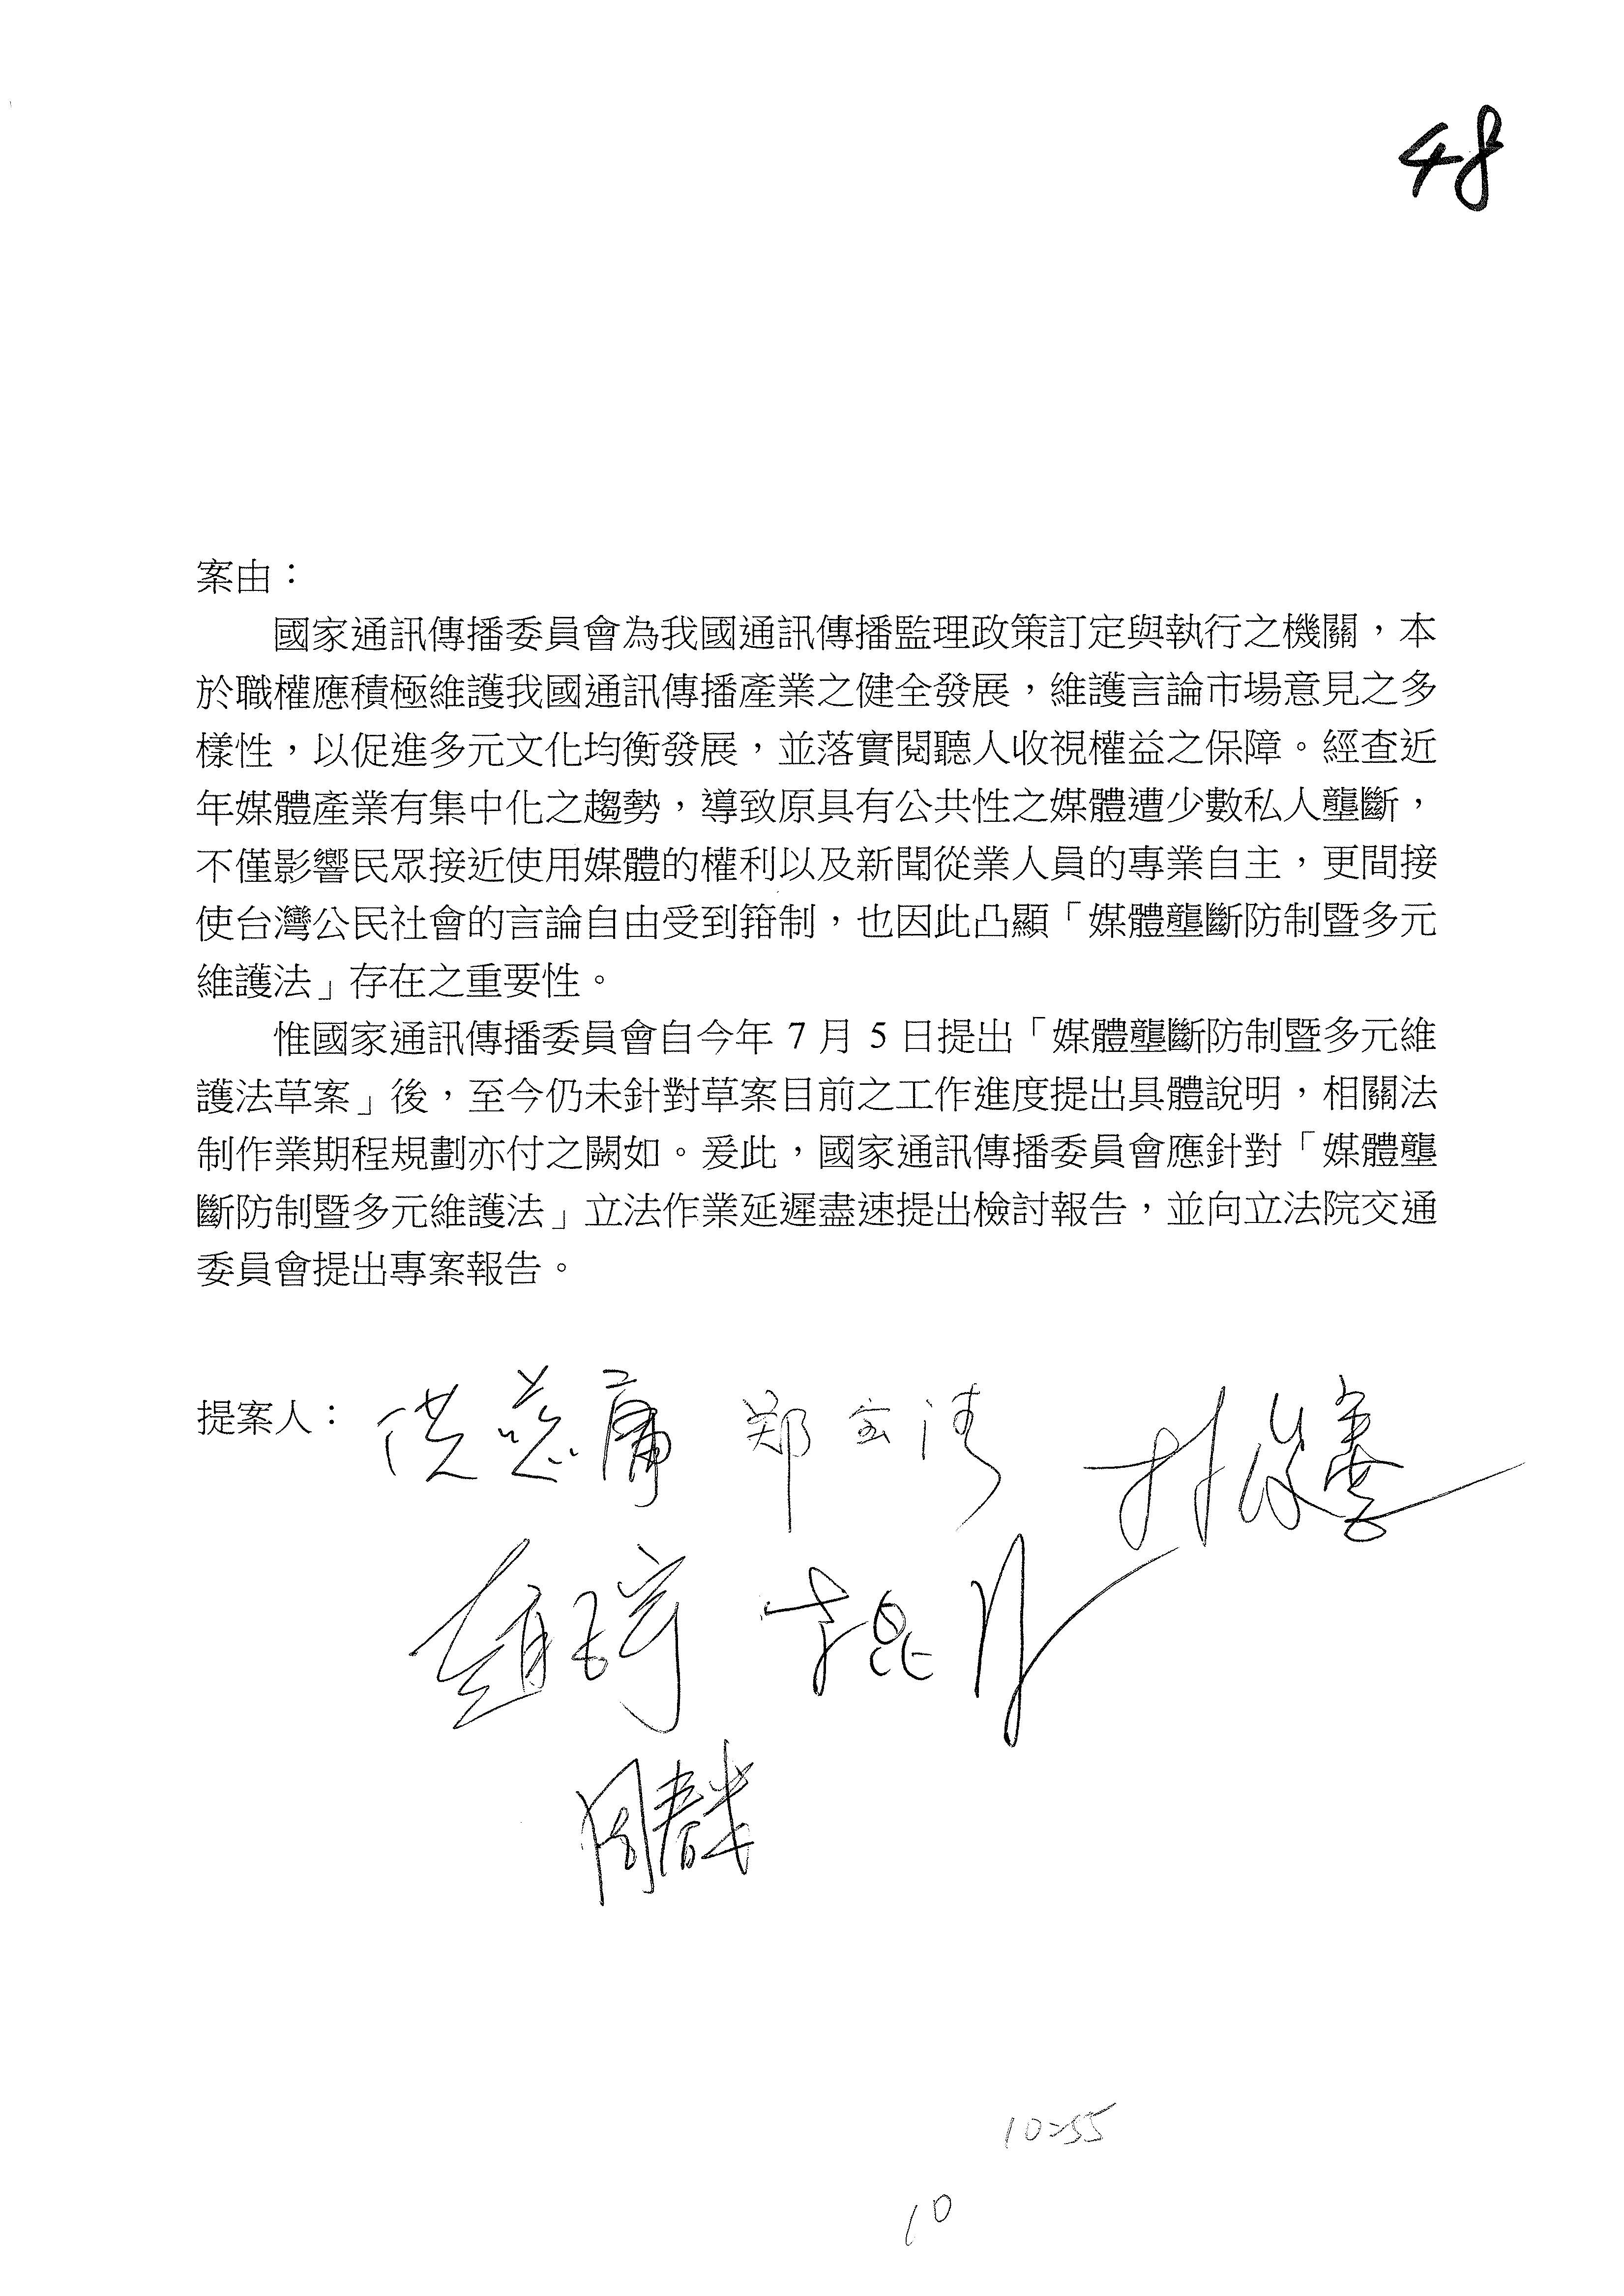 48
案由：
國家通訊傳播委員會為我國通訊傳播監理政策訂定與執行之機關，本
於職權應積極維護我國通訊傳播產業之健全發展，維護言論市場意見之多
樣性，以促進多元文化均衡發展，並落實閱聽人收視權益之保障。經查近
年媒體產業有集中化之趨勢，導致原具有公共性之媒體遭少數私人壟斷，
不僅影響民眾接近使用媒體的權利以及新聞從業人員的專業自主，更間接
使台灣公民社會的言論自由受到箝制，也因此凸顯「媒體壟斷防制暨多元
維護法」存在之重要性。
惟國家通訊傳播委員會自今年 7 月 5 日提出「媒體壟斷防制暨多元維
護法草案」後，至今仍未針對草案目前之工作進度提出具體說明，相關法
制作業期程規劃亦付之闕如。爰此，國家通訊傳播委員會應針對「媒體壟
斷防制暨多元維護法」立法作業延遲盡速提出檢討報告，並向立法院交通
委員會提出專案報告。
提案人： 洪慈庸 鄭宝清
10:55
10